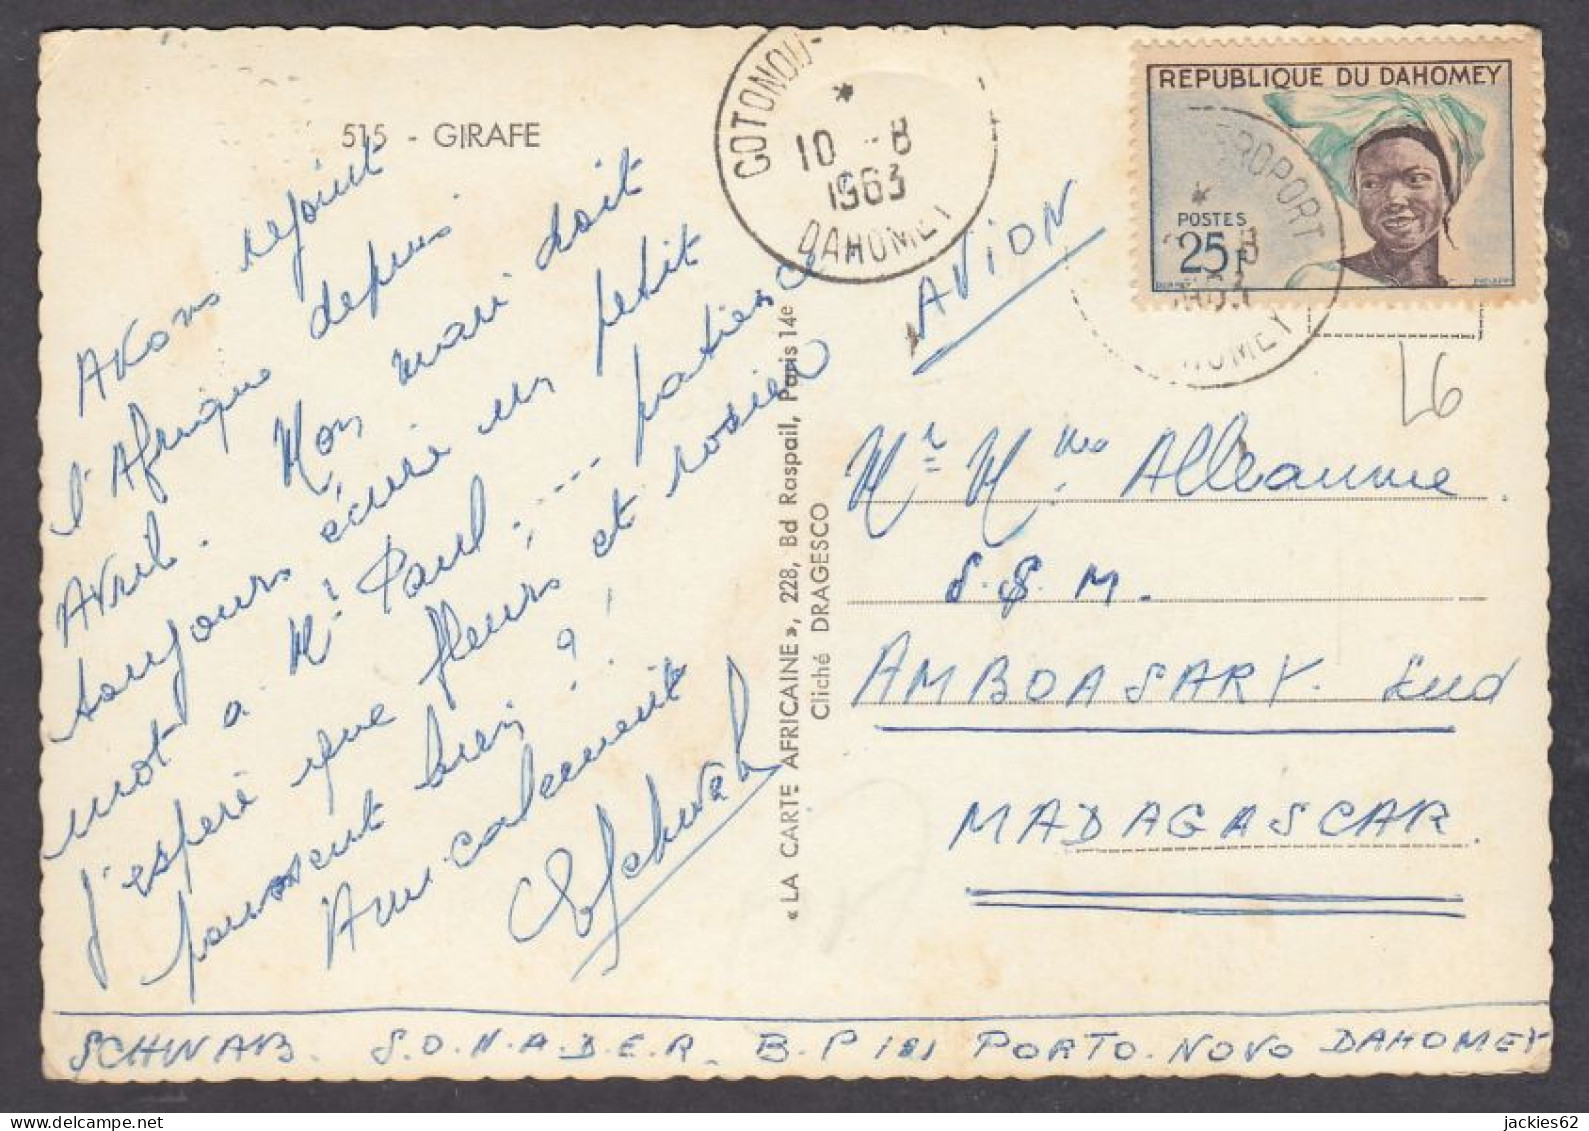 515 - GIRAFE
Avons rejoint
l'Afrique depuis
Avril. Mon mari doit
toujours écrire un petit
mot à Mr Paul, --- patience
j'espère que fleurs et rosier
poussent bien ?
Amicalement
Schwab
SCHWAB. S.O.N.A.D.E.R. B.P 181 PORTO.NOVO DAHOMEY
« LA CARTE AFRICAINE », 228, Bd Raspail, Paris 14e
Cliché DRAGESCO
COTONOU-
*
10 -8
1963
DAHOMEY
AVION
REPUBLIQUE DU DAHOMEY
POSTES
25F
AEROPORT
*
DAHOMEY
L6
Mr Mme Alleaume
S.S.M.
AMBOASARY. Sud
MADAGASCAR.
jackies62